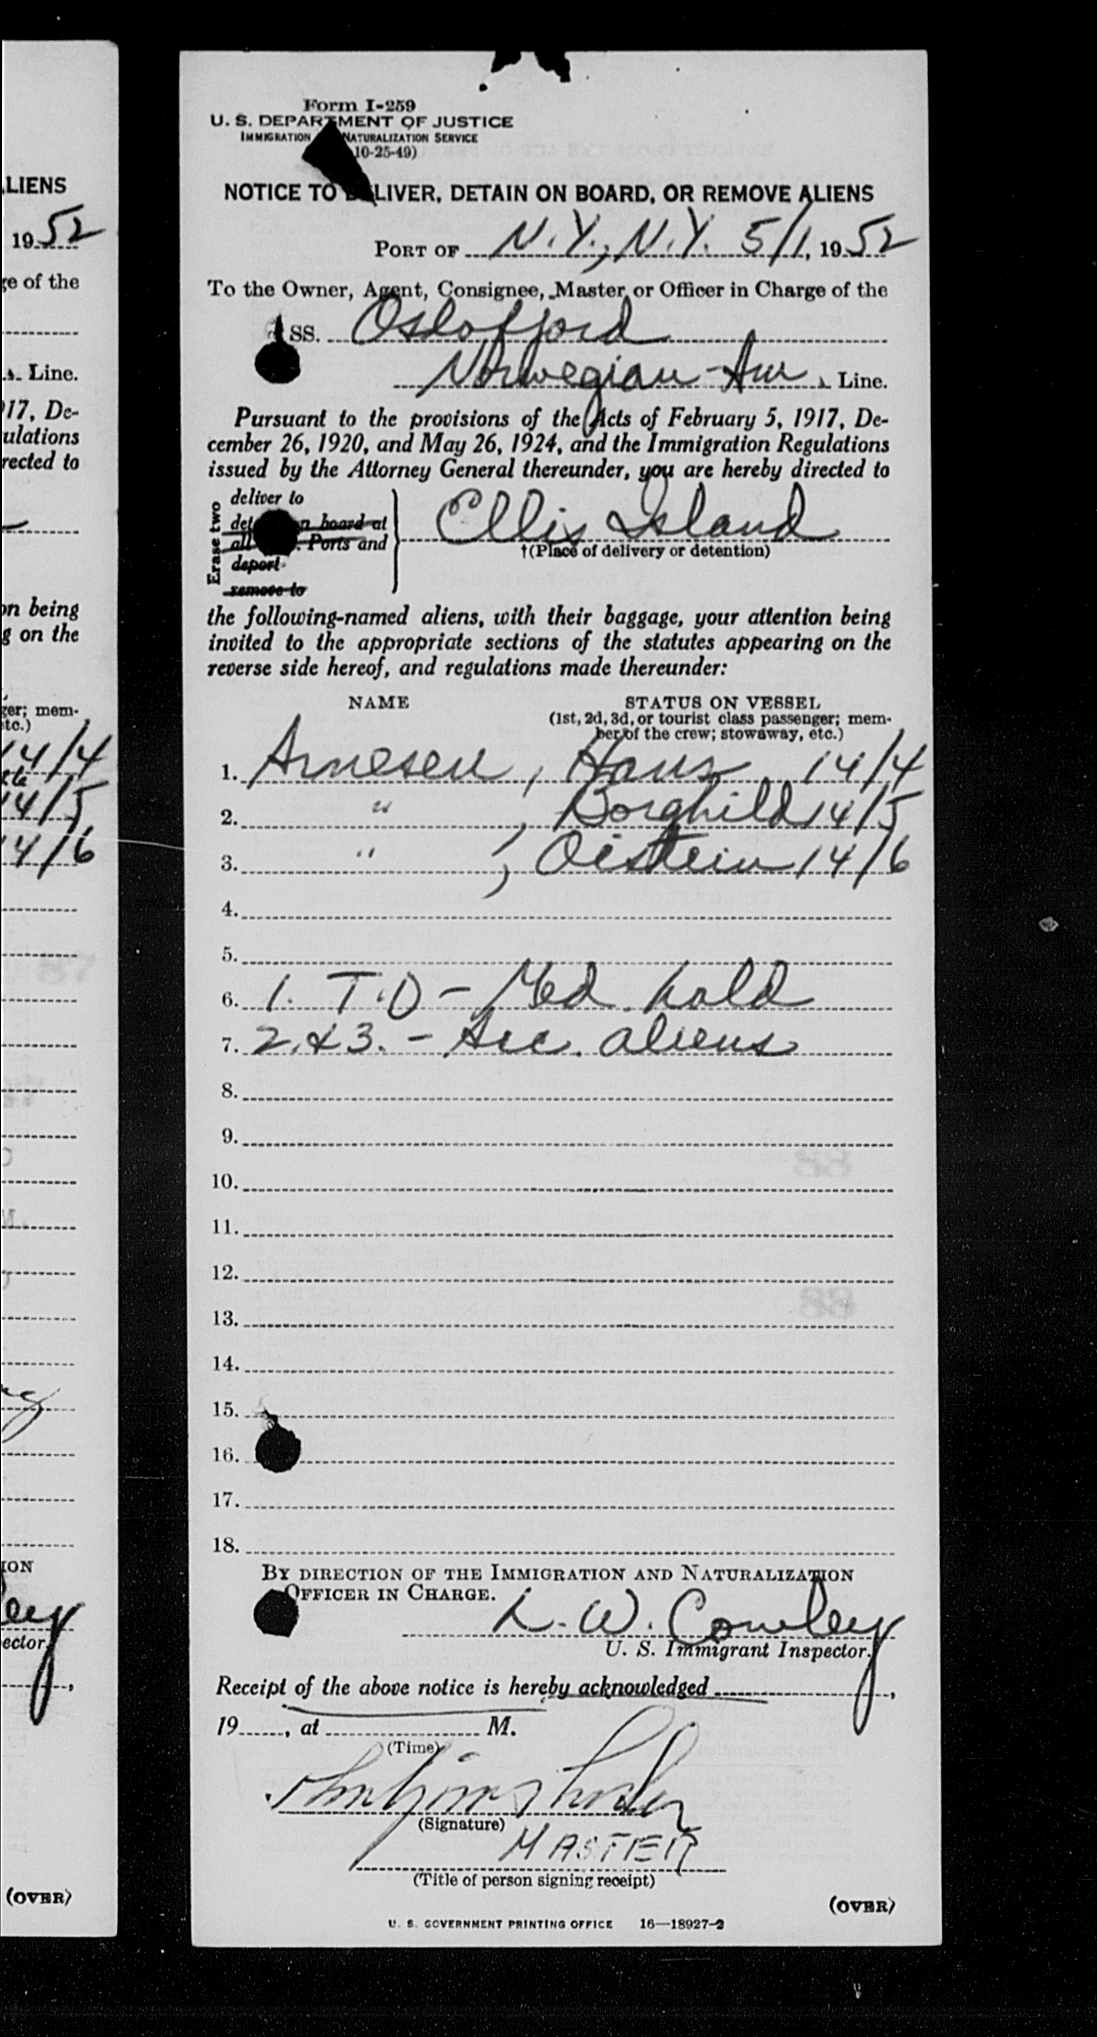 Form I-259
U. S. DEPARTMENT OF JUSTICE
IMMIGRATION NATURALIZATION SERVICE
10-25-49)
NOTICE TO DELIVER, DETAIN ON BOARD, OR REMOVE ALIENS
PORT OF N.Y., N.Y. 5/1, 1952
To the Owner, Agent, Consignee, Master, or Officer in Charge of the
SS. Oslofjord
Norwegian-Am. Line.
Pursuant to the provisions of the Acts of February 5, 1917, De-
cember 26, 1920, and May 26, 1924, and the Immigration Regulations
issued by the Attorney General thereunder, you are hereby directed to
Erase two
deliver to
det n board at
all Ports and
deport
remove to
Ellis Island
†(Place of delivery or detention)
the following-named aliens, with their baggage, your attention being
invited to the appropriate sections of the statutes appearing on the
reverse side hereof, and regulations made thereunder:
NAME STATUS ON VESSEL
(1st, 2d, 3d, or tourist class passenger; mem-
ber of the crew; stowaway, etc.)
1. Arnesen, Hans 14/4
2. " , Borghild 14/5
3. " , Oistein 14/6
4.
5.
6. 1. T.D - Med. hold
7. 2. & 3. - Acc. aliens
8.
9.
10.
11.
12.
13.
14.
15.
16.
17.
18.
BY DIRECTION OF THE IMMIGRATION AND NATURALIZATION
OFFICER IN CHARGE.
L. W. Cowley
U. S. Immigrant Inspector.
Receipt of the above notice is hereby acknowledged ,
19 , at M.
(Time)
(Signature)
MASTER
(Title of person signing receipt)
(OVER)
U. S. GOVERNMENT PRINTING OFFICE 16—18927-2
LIENS
1952
ge of the
Line.
917, De-
ulations
rected to
on being
g on the
ger; mem-
etc.)
14/4
14/5
14/6
ION
ley
ector.
(OVER)